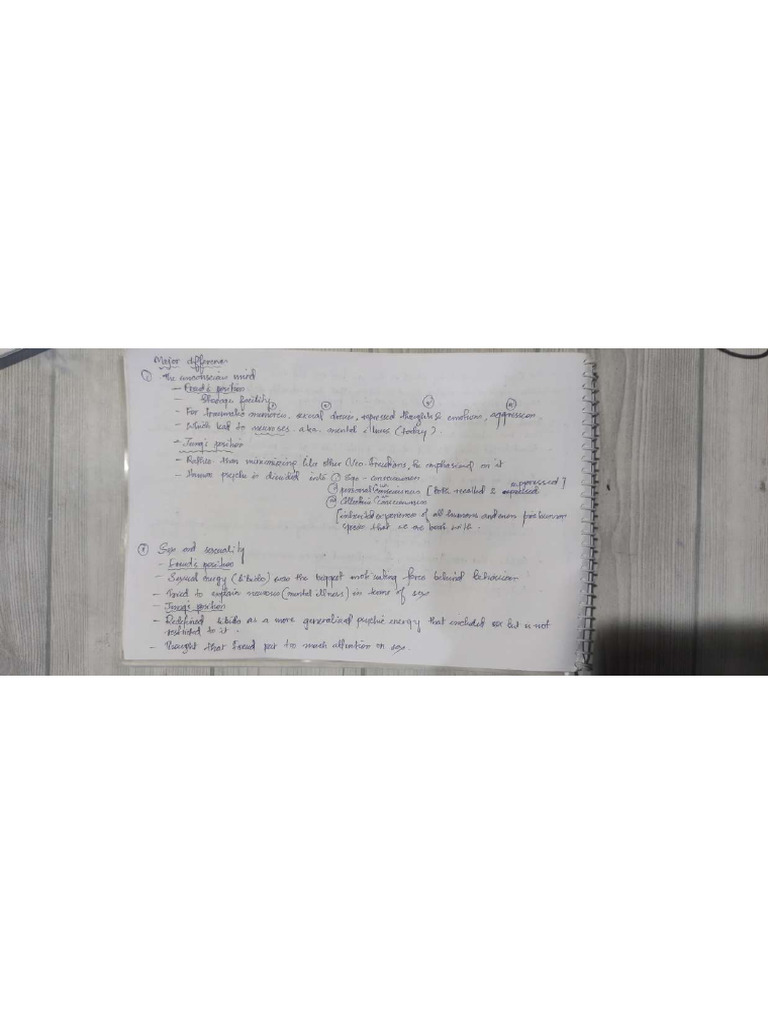 Major difference
① The unconscious mind
- Freud's position
- Storage facility
- For traumatic memories, sexual desires, repressed thoughts & emotions, aggression.
- Which lead to neuroses. a.k.a. mental illness (today).
- Jung's position
- Rather than minimizing like other Neo-Freudians, he emphasised on it
- Human psyche is divided into ① Ego - consciousness
② personal unconscious [both recalled & repressed]
③ Collective unconscious
[inherited experiences of all humans and even pre human
species that we are born with.
② Sex and sexuality
- Freud's position
- Sexual energy (libido) was the biggest motivating force behind behaviour
- Tried to explain neurosis (mental illness) in terms of sex
- Jung's position
- Redefined libido as a more generalized psychic energy that included sex but is not
restricted to it.
- Thought that Freud put too much attention on sex.